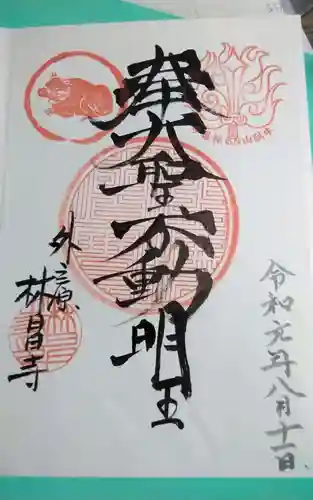 令和元年八月十一日
奉 大聖不動明王
外原
林昌寺